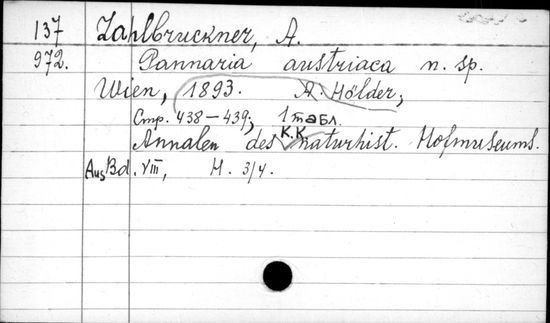 137 Zahlbruckner, A.
972. Pannaria austriaca n. sp.
Wien, 1893. A. Hölder,
Стр. 438-439, 1 табл.
Annalen des K.K. naturhist. Hofmuseums.
Aus Bd. VIII, H. 3/4.